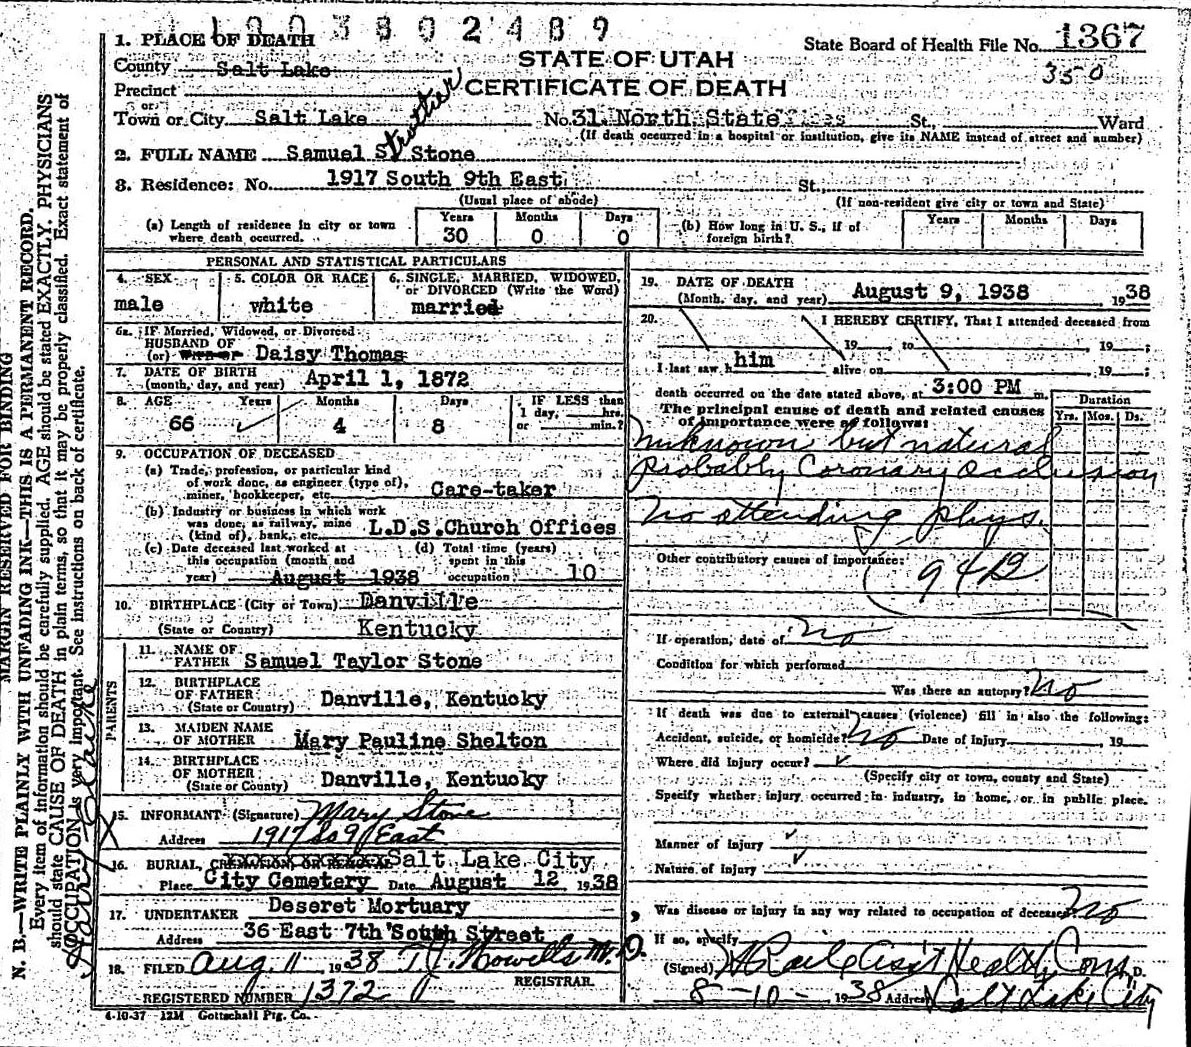 1003802489
1. PLACE OF DEATH
County Salt Lake
Precinct
or
Town or City Salt Lake
STATE OF UTAH
CERTIFICATE OF DEATH
State Board of Health File No. 1367
350
No. 31 North State St., Ward
(If death occurred in a hospital or institution, give its NAME instead of street and number)
Strother
2. FULL NAME Samuel S. Stone
3. Residence: No. 1917 South 9th East St.,
(Usual place of abode)
(If non-resident give city or town and State)
(a) Length of residence in city or town where death occurred. Years 30 Months 0 Days 0
(b) How long in U. S., if of foreign birth? Years Months Days
PERSONAL AND STATISTICAL PARTICULARS
4. SEX male
5. COLOR OR RACE white
6. SINGLE, MARRIED, WIDOWED, or DIVORCED (Write the Word) married
6a. IF Married, Widowed, or Divorced
HUSBAND OF
(or) WIFE OF Daisy Thomas
7. DATE OF BIRTH
(month, day, and year) April 1, 1872
8. AGE Years 66 Months 4 Days 8 IF LESS than 1 day, hrs. or min.?
9. OCCUPATION OF DECEASED
(a) Trade, profession, or particular kind
of work done, as engineer (type of),
miner, bookkeeper, etc. Care-taker
(b) Industry or business in which work
was done, as railway, mine
(kind of), bank, etc. L.D.S. Church Offices
(c) Date deceased last worked at
this occupation (month and
year) August 1938
(d) Total time (years)
spent in this
occupation 10
10. BIRTHPLACE (City or Town) Danville
(State or Country) Kentucky
PARENTS
11. NAME OF
FATHER Samuel Taylor Stone
12. BIRTHPLACE
OF FATHER
(State or Country) Danville, Kentucky
13. MAIDEN NAME
OF MOTHER Mary Pauline Shelton
14. BIRTHPLACE
OF MOTHER
(State or County) Danville, Kentucky
15. INFORMANT (Signature) Mary Stone
Address 1917 So 9 East
16. BURIAL, CREMATION OR REMOVAL Salt Lake City
Place City Cemetery Date August 12 1938
17. UNDERTAKER Deseret Mortuary
Address 36 East 7th South Street
18. FILED Aug 11 1938 T. J. Howells M.D.
REGISTRAR.
REGISTERED NUMBER 1372
4-10-37 12M Gottschall Ptg. Co.
19. DATE OF DEATH
(Month, day, and year) August 9, 1938 1938
20. I HEREBY CERTIFY, That I attended deceased from
19 , to 19 ;
I last saw him alive on 19 ;
death occurred on the date stated above, at 3:00 PM m.
The principal cause of death and related causes
of importance were as follows:
Duration
Yrs. Mos. Ds.
Unknown but natural
Probably Coronary occlusion
No attending phys.
Other contributory causes of importance:
94B
If operation, date of No
Condition for which performed
Was there an autopsy? No
If death was due to external causes (violence) fill in also the following:
Accident, suicide, or homicide? No Date of injury , 19
Where did injury occur?
(Specify city or town, county and State)
Specify whether injury occurred in industry, in home, or in public place.
Manner of injury
Nature of injury
Was disease or injury in any way related to occupation of deceased? No
If so, specify
(Signed) Asst Health Com. M.D.
8-10-1938 Address Salt Lake City
MARGIN RESERVED FOR BINDING
N. B.—WRITE PLAINLY WITH UNFADING INK—THIS IS A PERMANENT RECORD.
Every item of information should be carefully supplied. AGE should be stated EXACTLY. PHYSICIANS
should state CAUSE OF DEATH in plain terms, so that it may be properly classified. Exact statement of
OCCUPATION is very important. See instructions on back of certificate.